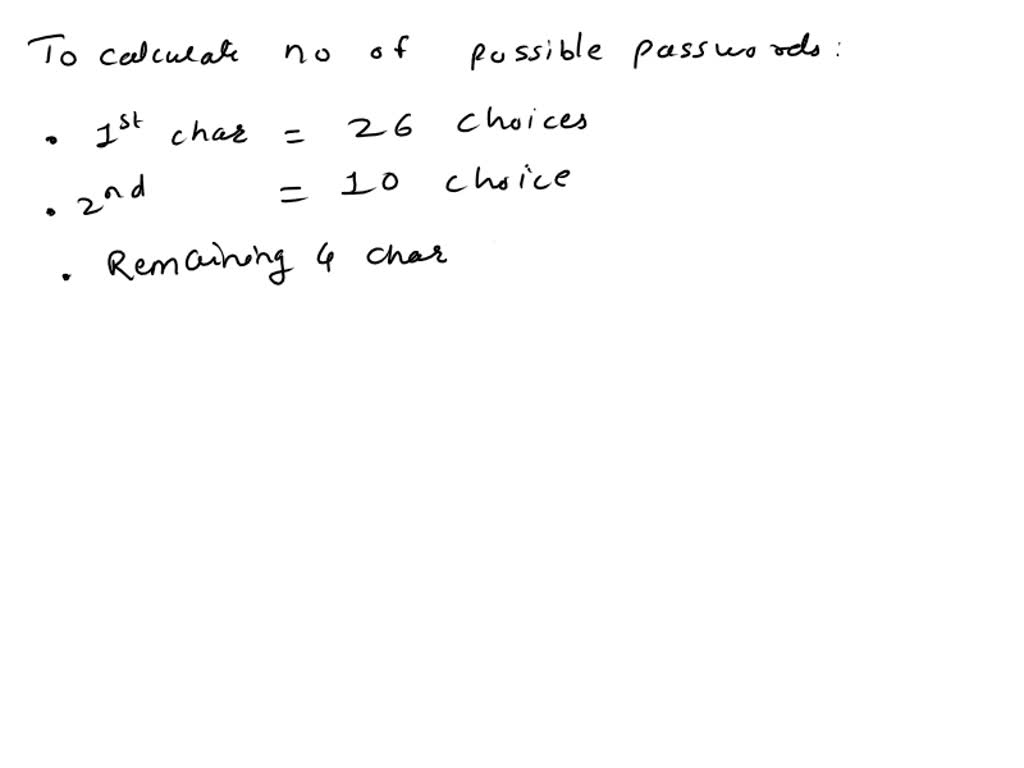 To calculate no of possible passwords:
• 1st char = 26 choices
• 2nd = 10 choice
• Remaining 4 char